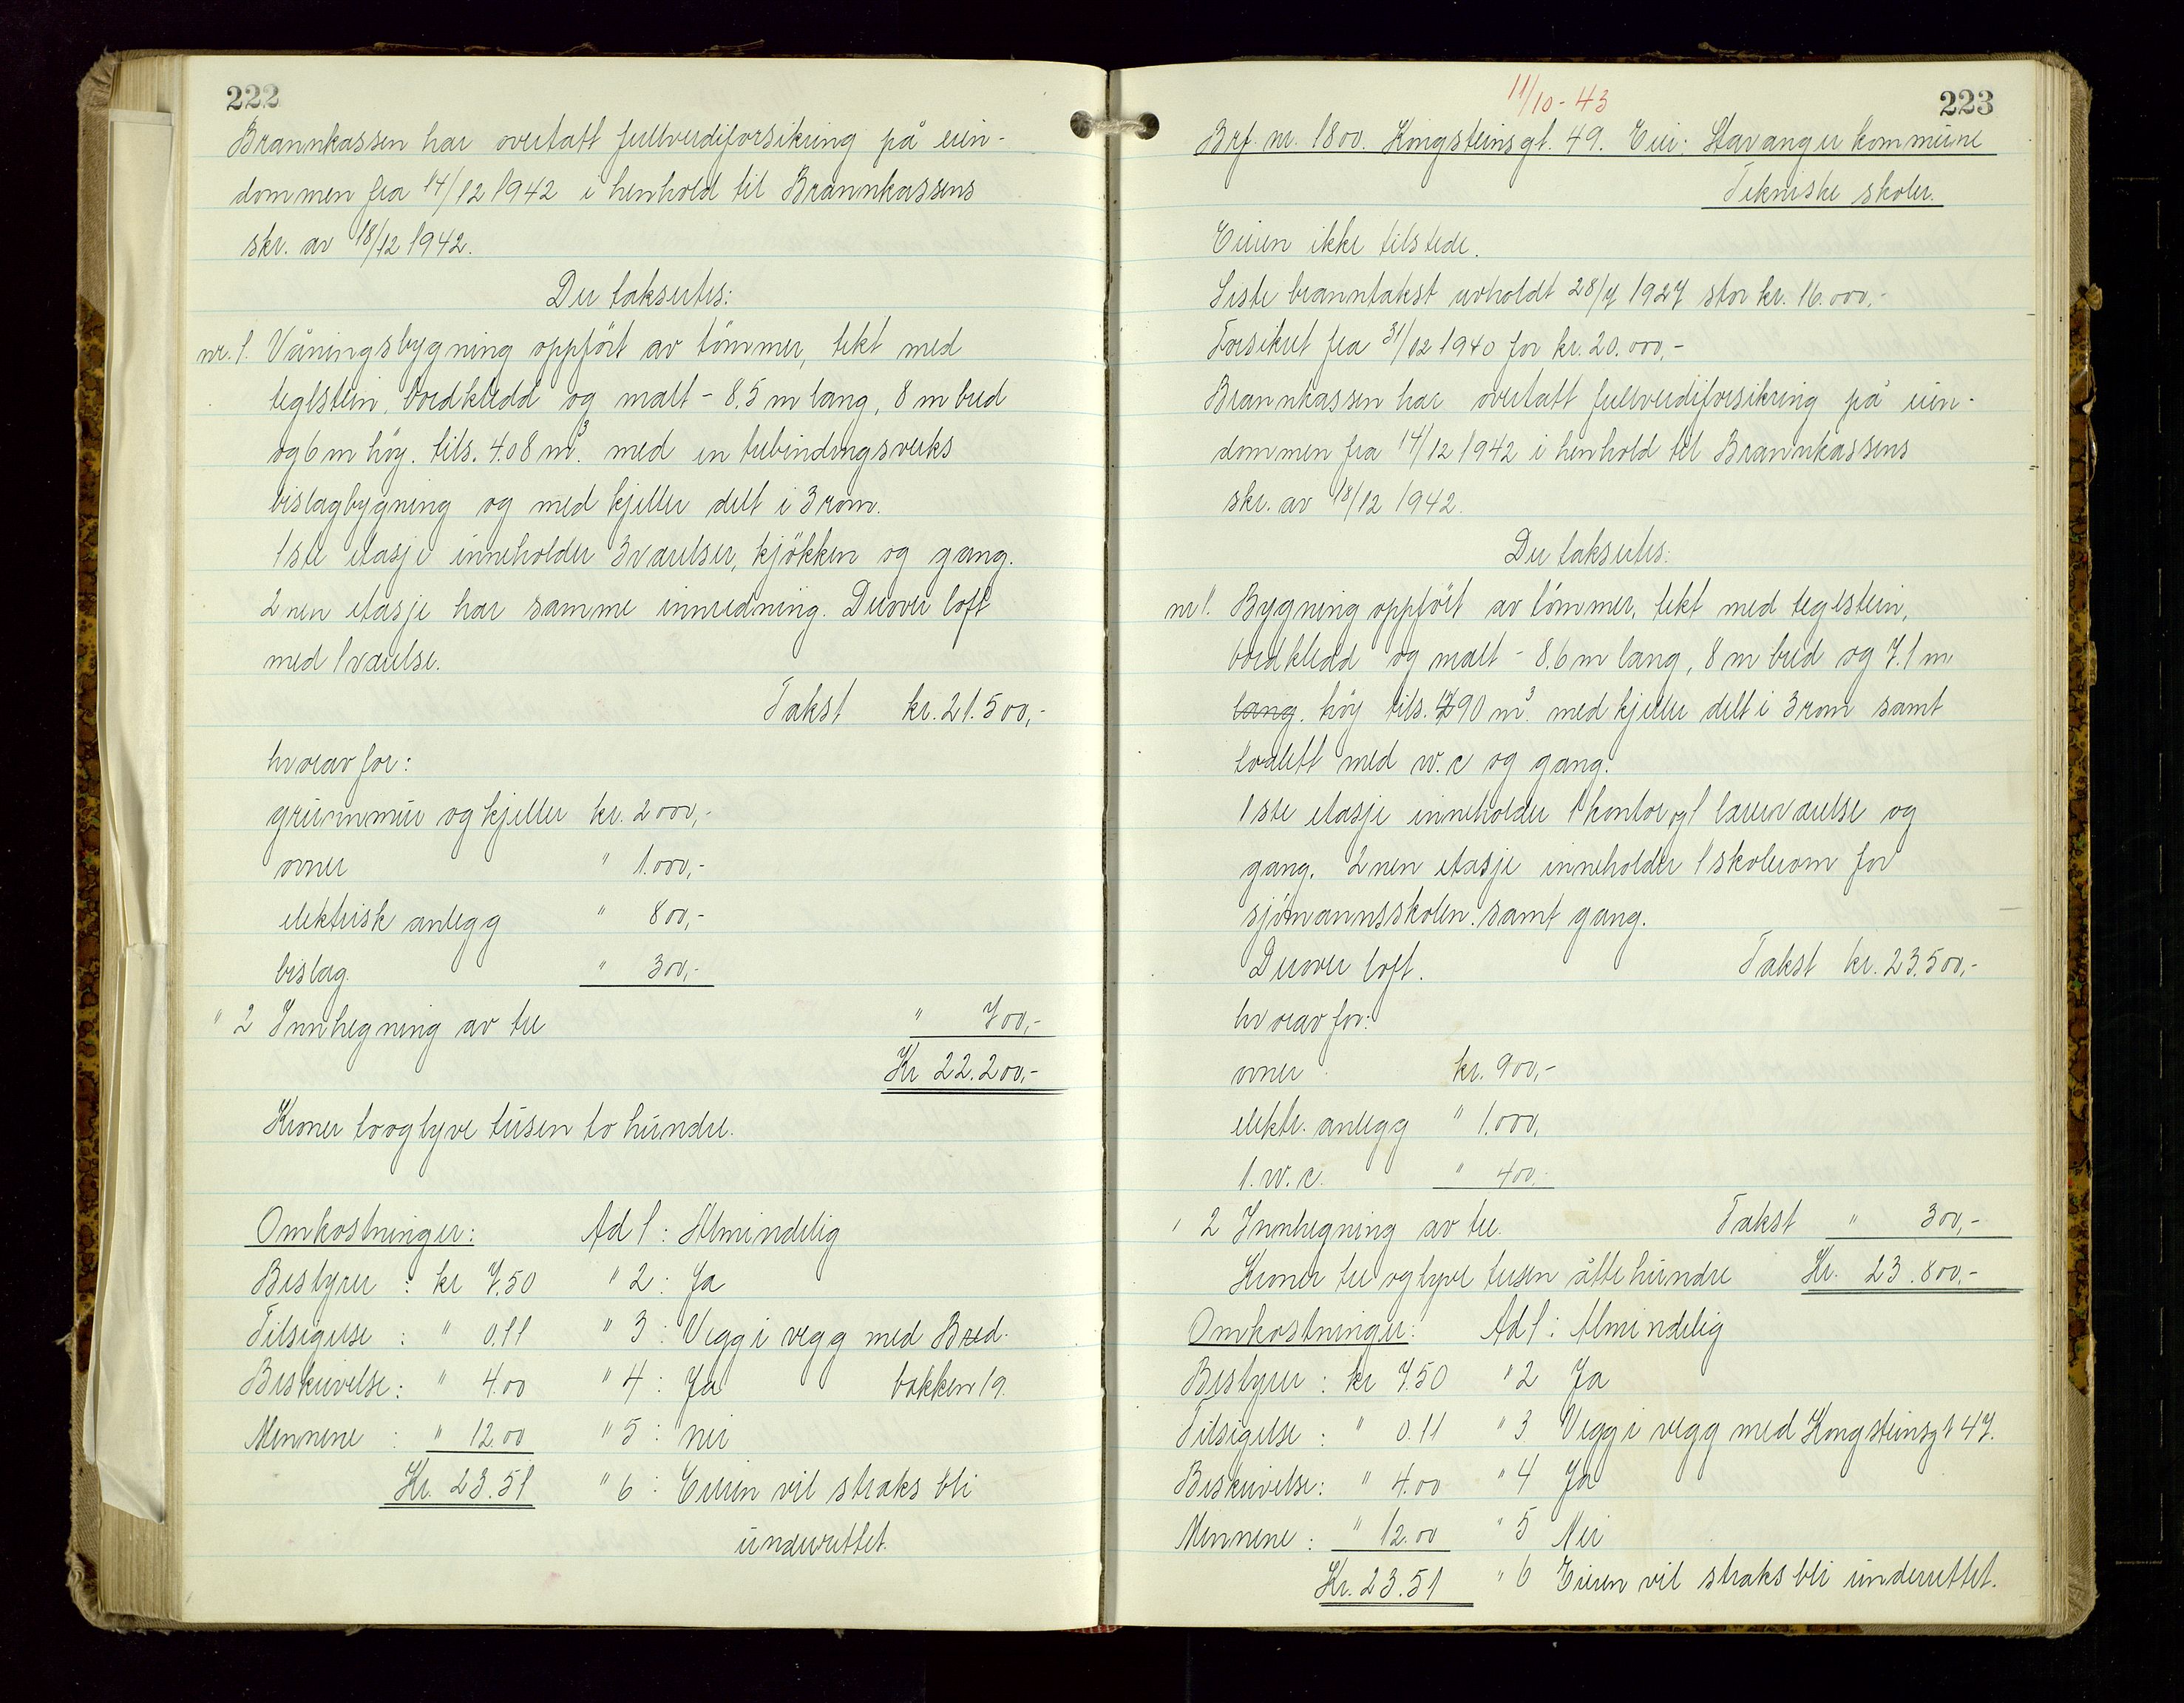 222
Brannkassen har overtatt fullverdiforsikring på eien-
dommen fra 14/12 1942 i henhold til Brannkassens
skr. av 18/12 1942.
Der takseres:
nr. 1. Våningsbygning oppført av tömmer, tekt med
teglstein, bordkledd og malt - 8.5 m lang, 8 m bred
og 6 m höy. tils. 408 m³. med en trebindingsverks
bislagbygning og med kjeller delt i 3 rom.
1ste etasje inneholder 3 værelser, kjökken og gang.
2nen etasje har samme innredning. Derover loft
med 1 værelse.
Takst kr. 21.500,-
hvorav for:
grunnmur og kjeller kr. 2000,-
ovner " 1.000,-
elektrisk anlegg " 800,-
bislag. " 300,-
" 2 Innhegning av tre " 700,-
Kr 22.200,-
Kroner toogtyve tusen to hundre.
Omkostninger: Ad 1 : Almindelig
Bestyrer : kr 7.50 " 2 : Ja
Tilsigelse : " 0.11 " 3 : Vegg i vegg med Bred-
Beskrivelse : " 4.00 " 4 : Ja bakken 19.
Mennene : " 12.00 " 5 : nei
Kr. 23.51 " 6 : Eieren vil straks bli
underrettet.
11/10 - 43
223
Brf. nr. 1800. Kongsteinsgt. 49. Eier: Stavanger kommune
Tekniske skoler.
Eieren ikke tilstede.
Siste branntakst avholdt 28/7 1927 stor kr. 16.000,-
Forsikret fra 31/12 1940 for kr. 20.000,-
Brannkassen har overtatt fullverdiforsikring på eien-
dommen fra 14/12 1942 i henhold til Brannkassens
skr. av 18/12 1942.
Der takseres:
nr 1. Bygning oppført av tömmer, tekt med teglstein,
bordkledd og malt - 8.6 m lang, 8 m bred og 7.1 m
lang. höy tils. 490 m³. med kjeller delt i 3 rom samt
toalett med w.c og gang.
1ste etasje inneholder 1 kontor og 1 lærerværelse og
gang. 2nen etasje inneholder 1 skolerom for
sjömannsskolen. samt gang.
Derover loft. Takst kr. 23.500,-
hvorav for:
ovner kr. 900,-
elektr. anlegg " 1.000,
1. w.c. " 400.-
" 2 Innhegning av tre. Takst " 300,-
Kroner tre og tyve tusen åtte hundre Kr. 23.800,-
Omkostninger: Ad 1 : Almindelig
Bestyrer : kr 7.50 " 2 Ja
Tilsigelse : " 0.11 " 3 Vegg i vegg med Kongsteinsgt 47.
Beskrivelse: " 4.00 " 4 Ja
Mennene : " 12.00 " 5 Nei
Kr. 23.51 " 6 Eieren vil straks bli underrettet.